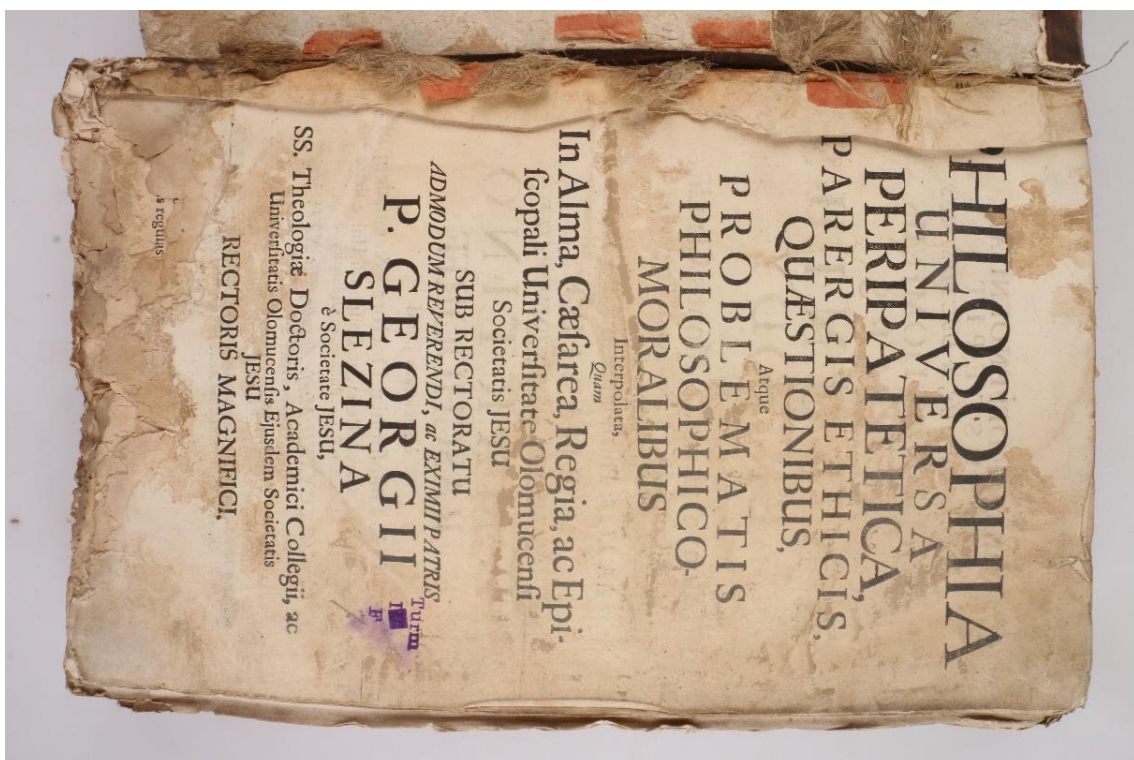 PHILOSOPHIA
UNIVERSA
PERIPATETICA,
PARERGIS ETHICIS,
QUÆSTIONIBUS,
Atque
PROBLEMATIS
PHILOSOPHICO-
MORALIBUS
Interpolata,
Quam
In Alma, Cæſarea, Regia, ac Epi-
ſcopali Univerſitate Olomucenſi
Societatis JESU
SUB RECTORATU
ADMODUM REVERENDI, ac EXIMII PATRIS
P. GEORGII
SLEZINA
è Societate JESU,
SS. Theologiæ Doctoris, Academici Collegii, ac
Univerſitatis Olomucenſis Ejusdem Societatis
JESU
RECTORIS MAGNIFICI,
s regulas
Turm
I
F